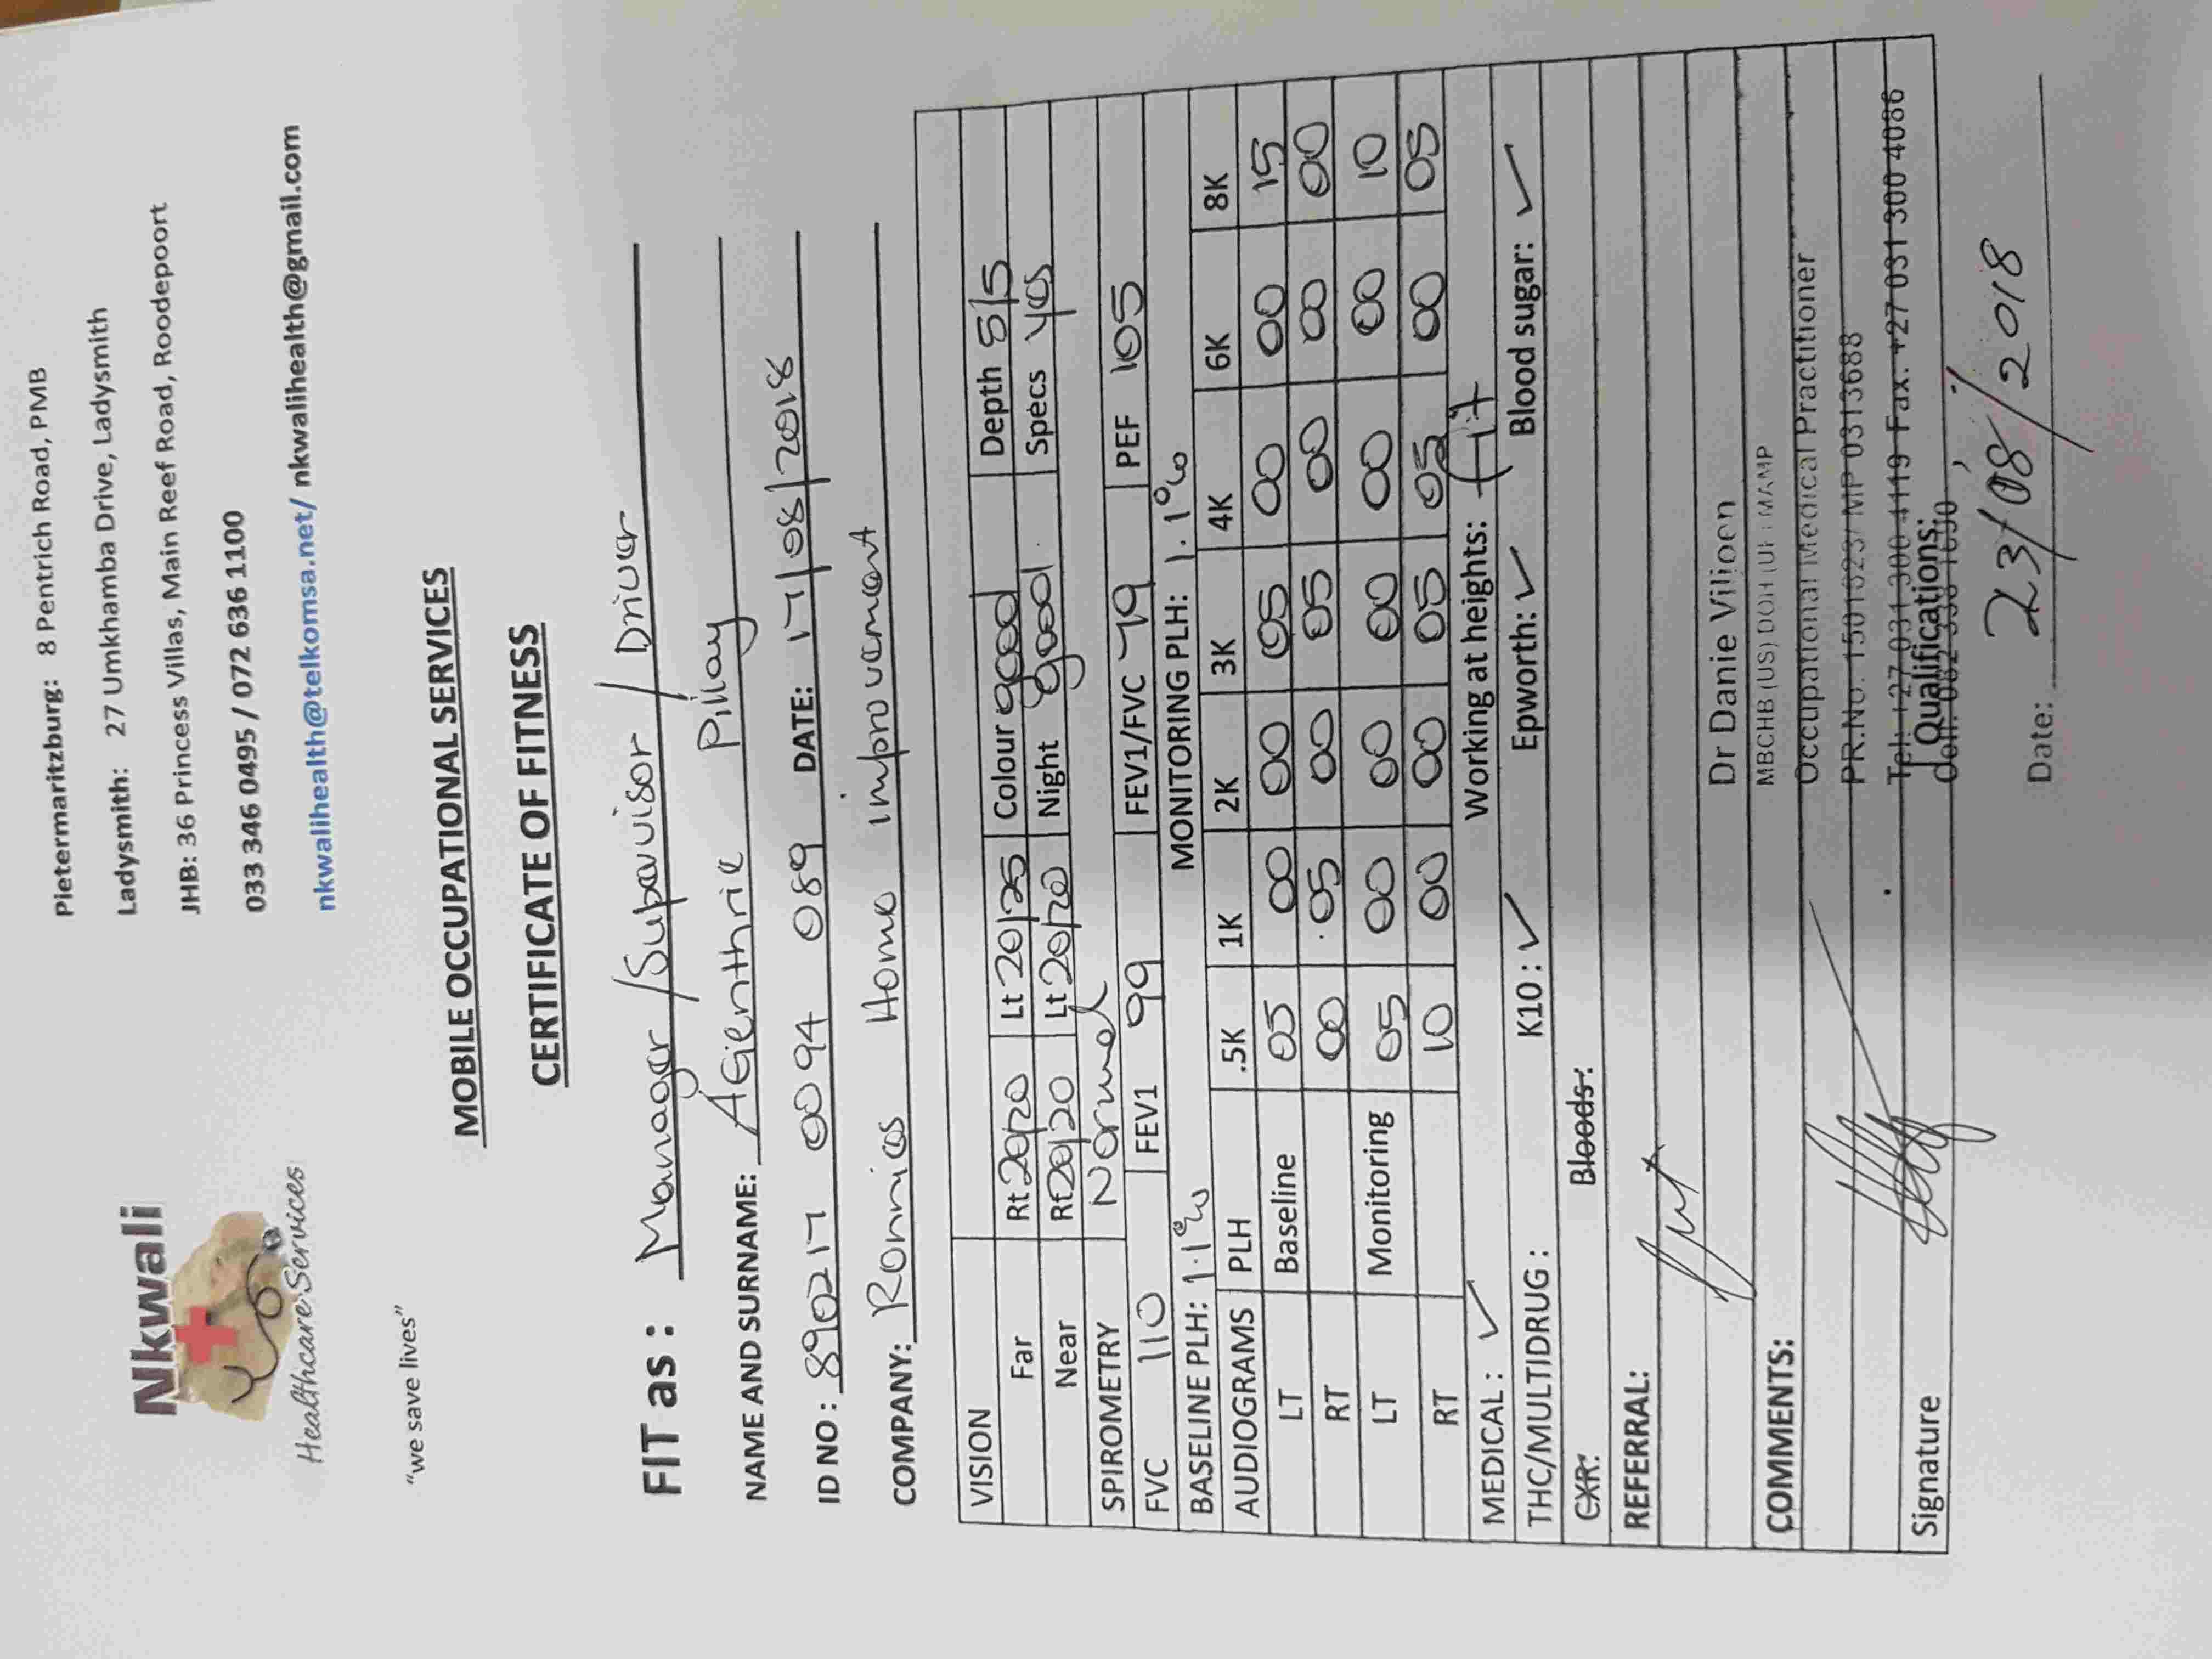 Nkwali
Healthcare Services
"we save lives"
Pietermaritzburg: 8 Pentrich Road, PMB
Ladysmith: 27 Umkhamba Drive, Ladysmith
JHB: 36 Princess Villas, Main Reef Road, Roodepoort
033 346 0495 / 072 636 1100
nkwalihealth@telkomsa.net/ nkwalihealth@gmail.com
MOBILE OCCUPATIONAL SERVICES
CERTIFICATE OF FITNESS
FIT as : Manager /Supervisor / Driver
NAME AND SURNAME: Agienthrie Pillay
ID NO : 890217 0094 089 DATE: 17/08/2018
COMPANY: Ronnies Home improvement
VISION
Far Rt 20/20 Lt 20/25 Colour good Depth 5/5
Near Rt 20/20 Lt 20/20 Night good. Specs yes
SPIROMETRY Normal
FVC 110 FEV1 99 FEV1/FVC 79 PEF 105
BASELINE PLH: 1.1% MONITORING PLH: 1.1%
AUDIOGRAMS PLH .5K 1K 2K 3K 4K 6K 8K
LT Baseline 05 00 00 05 00 00 15
RT 00 05 00 05 00 00 00
LT Monitoring 05 00 00 00 00 00 10
RT 10 00 00 05 05 00 05
MEDICAL : ✓ Working at heights: fit
THC/MULTIDRUG : K10 : ✓ Epworth: ✓ Blood sugar: ✓
CXR: Bloods:
REFERRAL:
Dr Danie Viljoen
COMMENTS:
Occupational Medical Practitioner
Signature
Qualifications:
Date: 23/08/2018